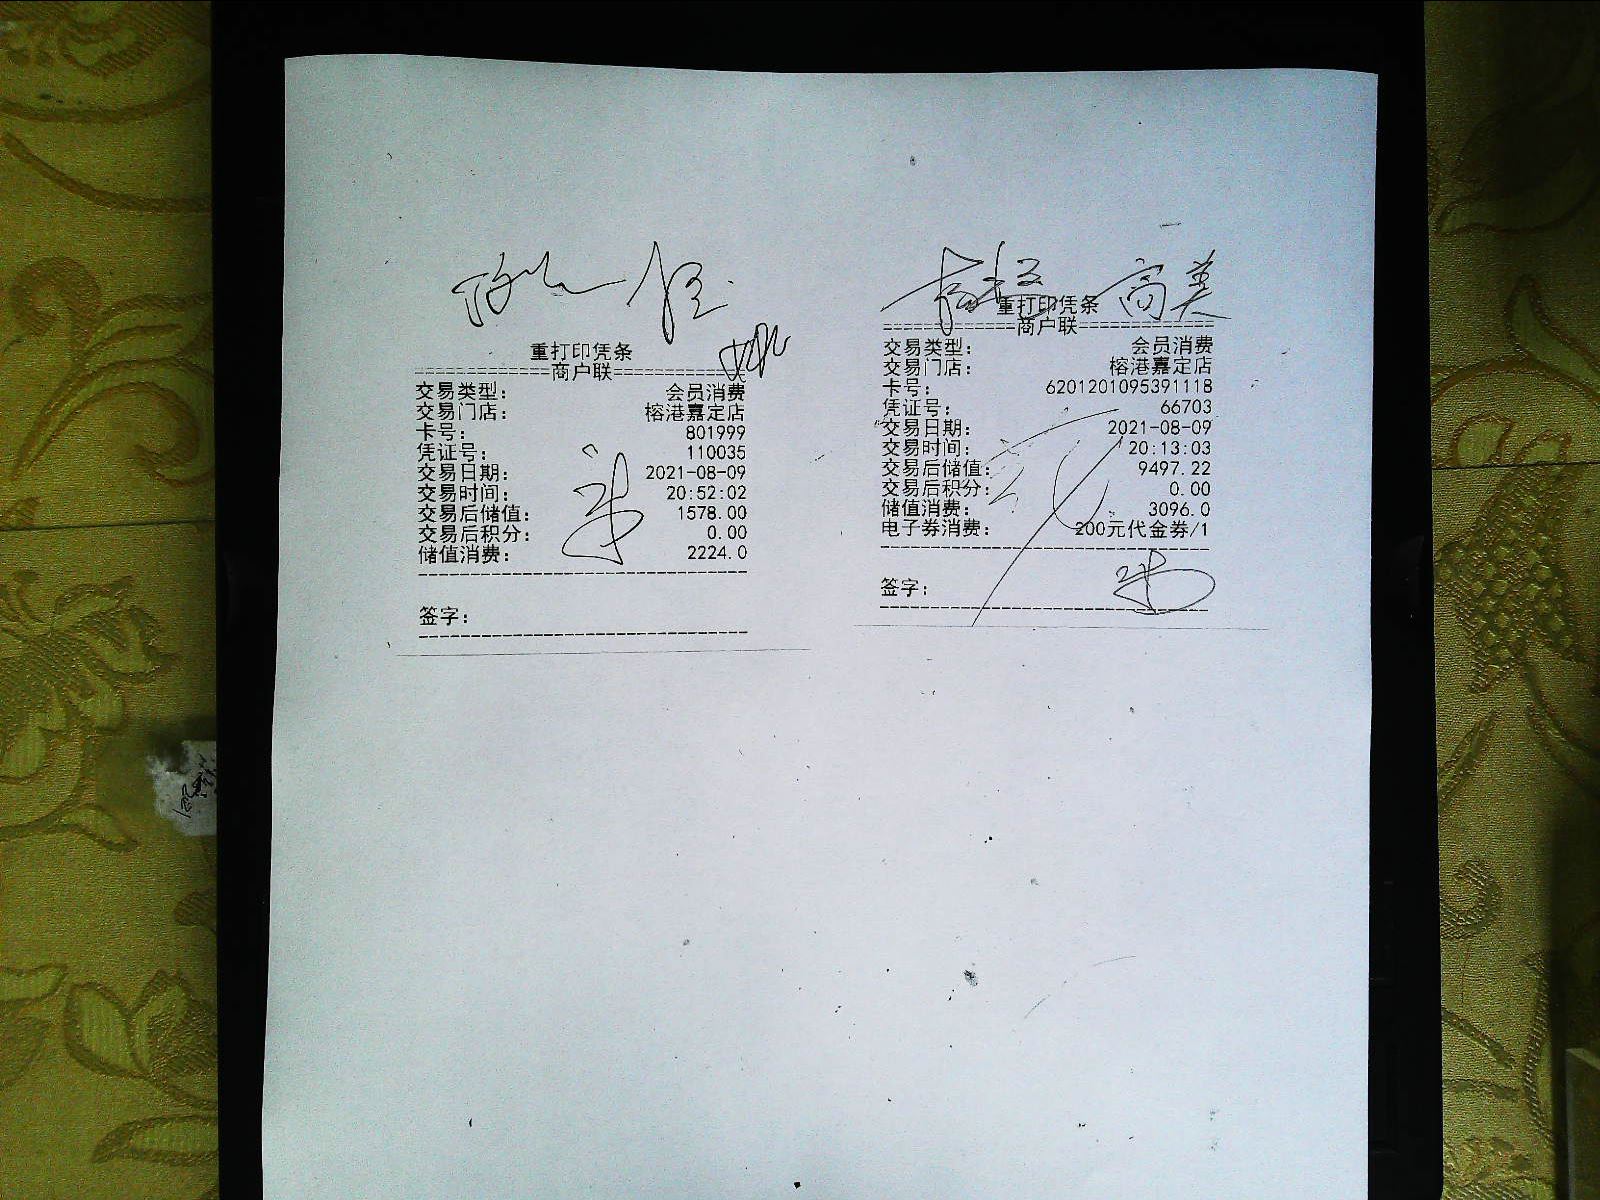 重打印凭条
============商户联============
交易类型: 会员消费
交易门店: 榕港嘉定店
卡号: 801999
凭证号: 110035
交易日期: 2021-08-09
交易时间: 20:52:02
交易后储值: 1578.00
交易后积分: 0.00
储值消费: 2224.0
签字:
高美
重打印凭条
============商户联============
交易类型: 会员消费
交易门店: 榕港嘉定店
卡号: 6201201095391118
凭证号: 66703
交易日期: 2021-08-09
交易时间: 20:13:03
交易后储值: 9497.22
交易后积分: 0.00
储值消费: 3096.0
电子券消费: 200元代金券/1
签字: